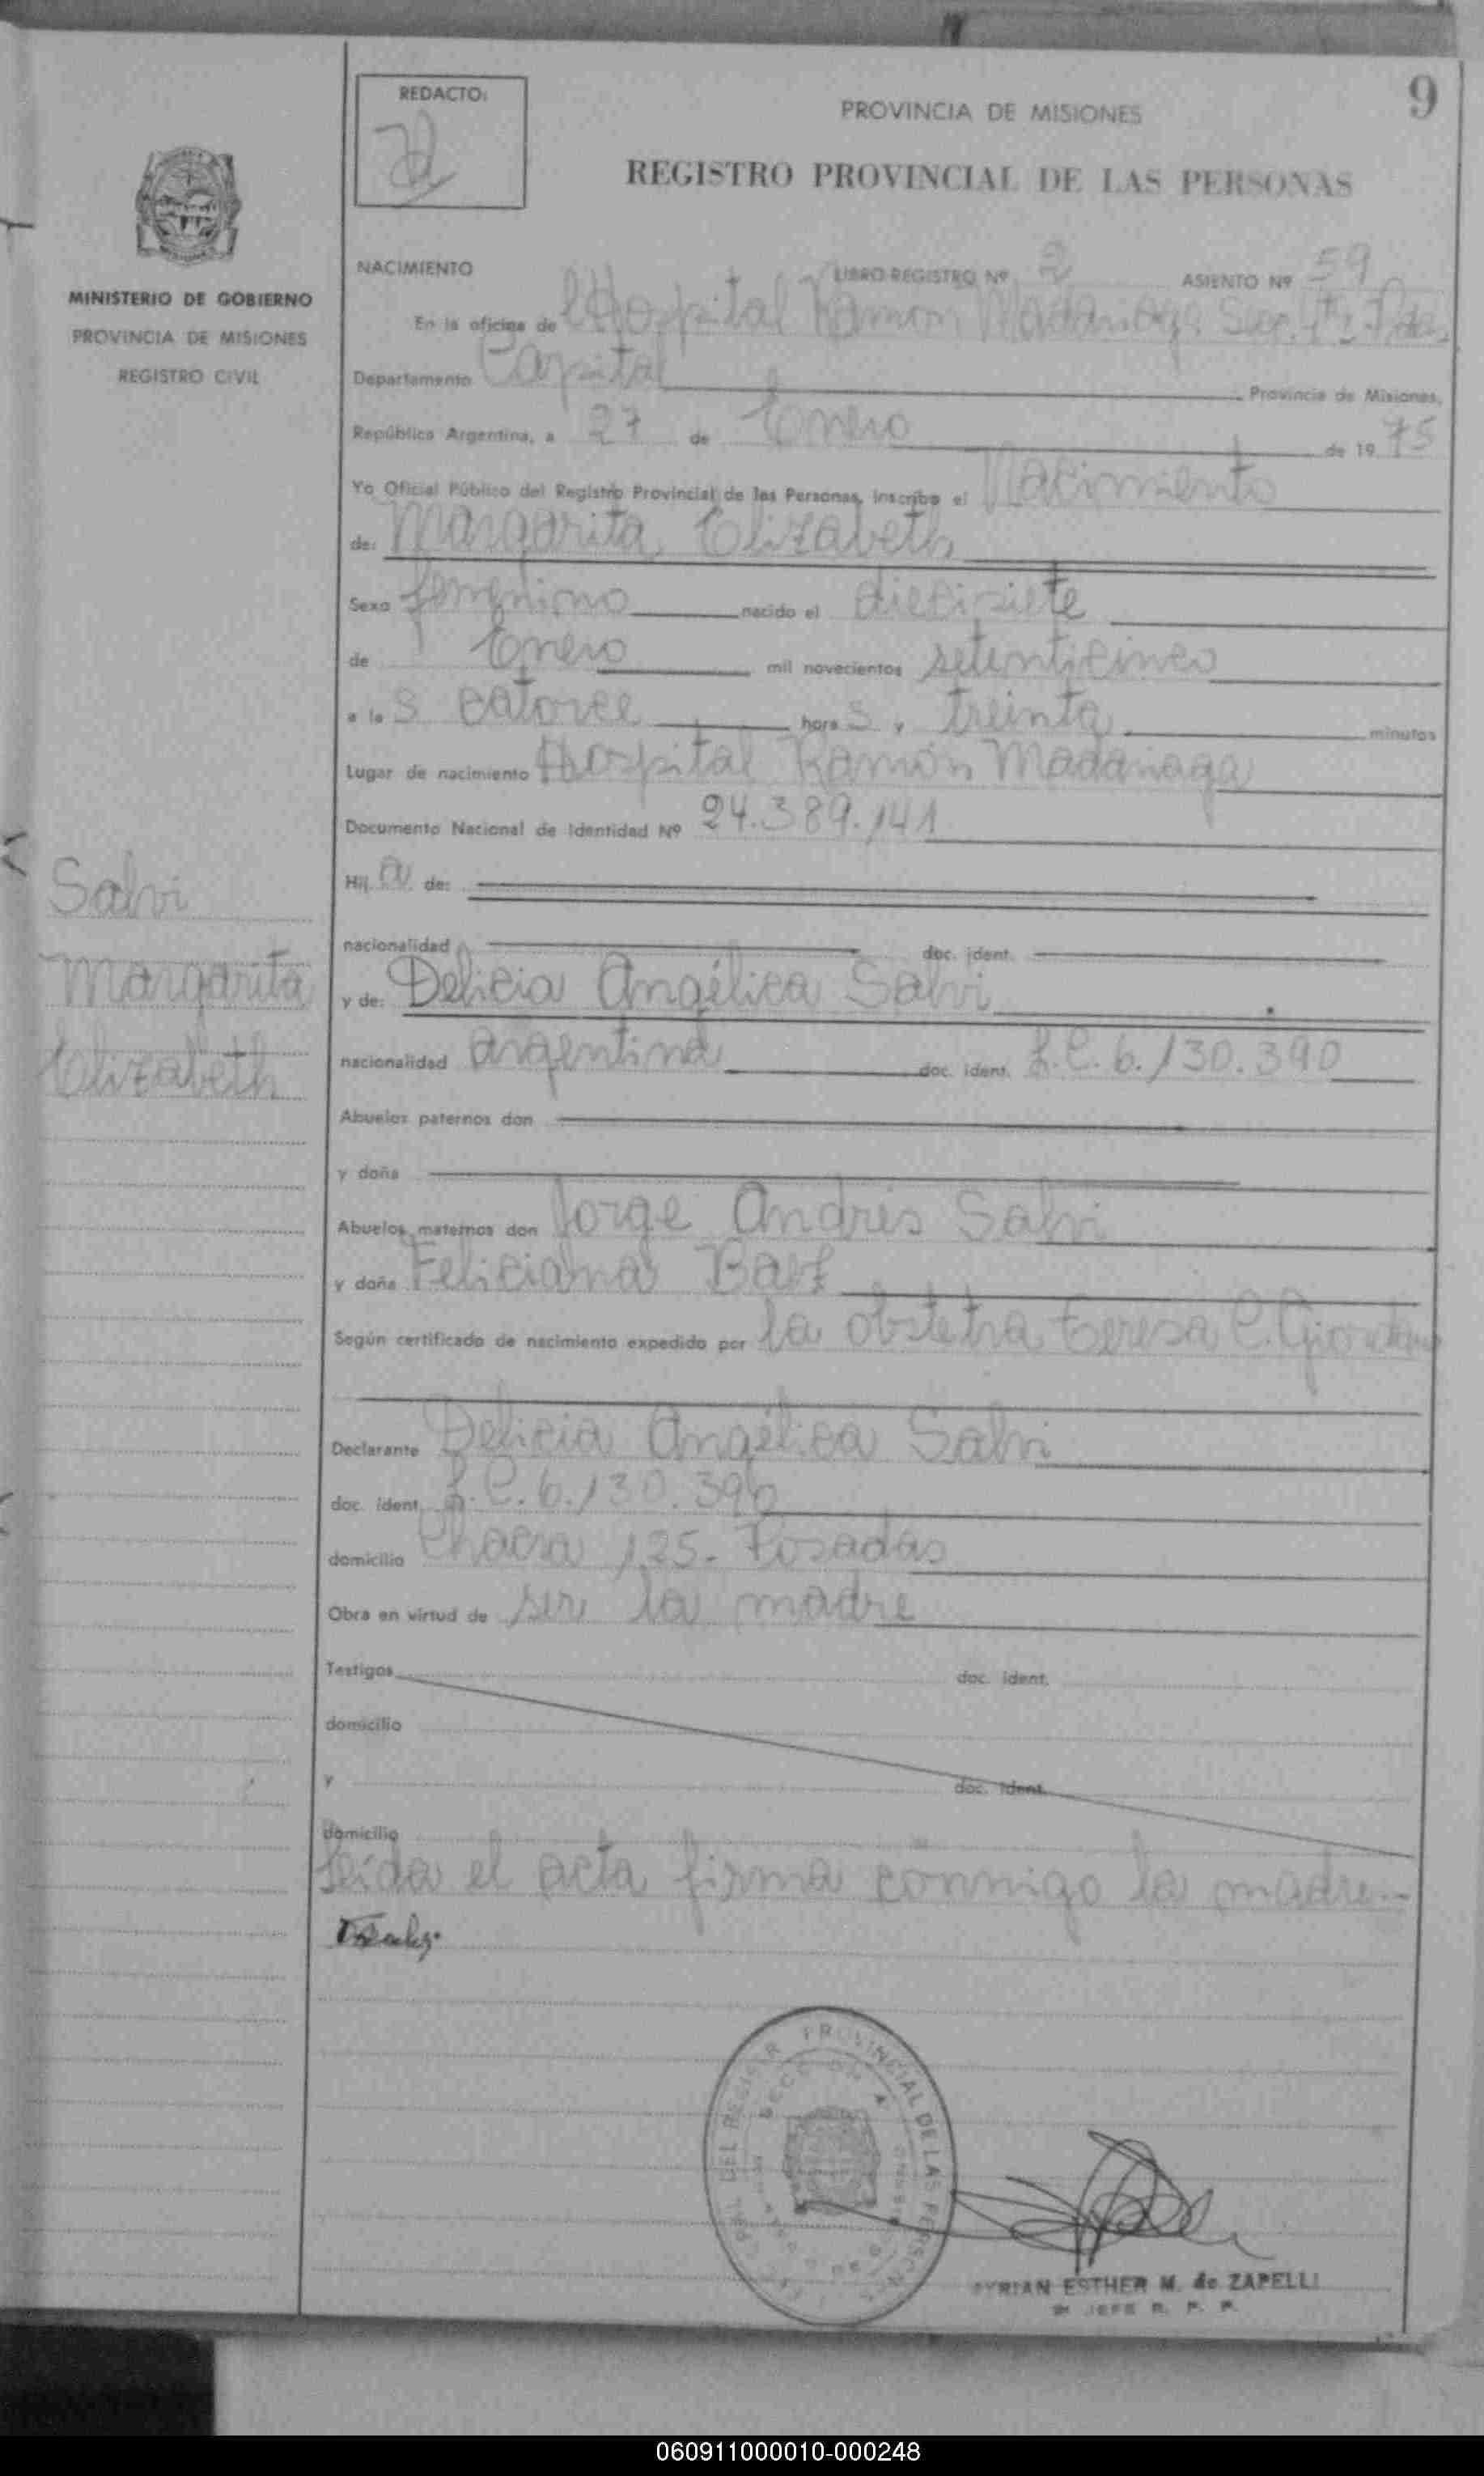 9
REDACTO:
PROVINCIA DE MISIONES
REGISTRO PROVINCIAL DE LAS PERSONAS
MINISTERIO DE GOBIERNO
PROVINCIA DE MISIONES
REGISTRO CIVIL
NACIMIENTO LIBRO REGISTRO Nº 2 ASIENTO Nº 59
En la oficina del Hospital Ramón Madariaga Secc. 4ta Pdas
Departamento Capital Provincia de Misiones,
República Argentina, a 27 de Enero de 1975
Yo Oficial Público del Registro Provincial de las Personas, inscribo el Nacimiento
de: Margarita Elizabeth
Sexo femenino nacido el diecisiete
de Enero mil novecientos setenticinco
a la s catorce hora s y treinta minutos
Lugar de nacimiento Hospital Ramón Madariaga
Documento Nacional de Identidad Nº 24.389.141
Hij a de:
nacionalidad doc. ident.
y de: Delicia Angélica Salvi
nacionalidad argentina doc. ident. L.C. 6.130.390
Abuelos paternos don
y doña
Abuelos maternos don Jorge Andrés Salvi
y doña Feliciana Baez
Según certificado de nacimiento expedido por la obstetra Teresa C.
Declarante Delicia Angélica Salvi
doc. ident. L.C. 6.130.390
domicilio Chacra 125. Posadas
Obra en virtud de ser la madre
Testigos doc. ident.
domicilio
y doc. ident.
domicilio
Leída el acta firma conmigo la madre.-
Salvi
Margarita
Elizabeth
DEL REGISTR PROVINCIAL DE LAS PERSONAS
ESTHER M. de ZAPELLI
JEFE R. P. P.
060911000010-000248